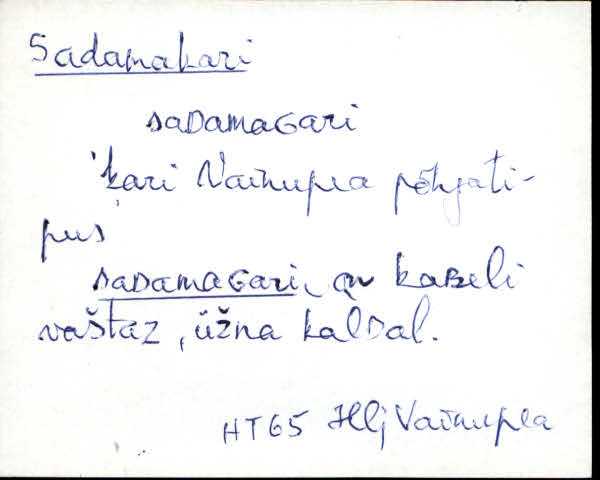 Sadamakari
saDamaGari
'kari Vainupea põhjati-
pus
saDamaGari, on kaBeli
vaštaz, üžna kalDal.
HT65 Hlj Vainupea